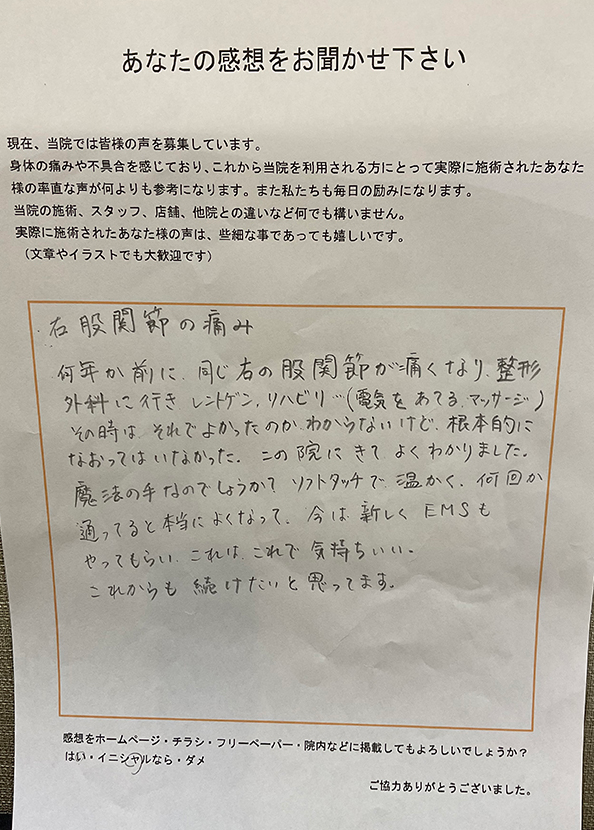 あなたの感想をお聞かせ下さい
現在、当院では皆様の声を募集しています。
身体の痛みや不具合を感じており、これから当院を利用される方にとって実際に施術されたあなた
様の率直な声が何よりも参考になります。また私たちも毎日の励みになります。
当院の施術、スタッフ、店舗、他院との違いなど何でも構いません。
実際に施術されたあなた様の声は、些細な事であっても嬉しいです。
（文章やイラストでも大歓迎です）
右股関節の痛み
何年か前に、同じ右の股関節が痛くなり、整形
外科に行き レントゲン、リハビリ…(電気をあてる、マッサージ)
その時は、それでよかったのか、わからないけど、根本的に
なおってはいなかった。この院にきて、よくわかりました。
魔法の手なのでしょうか? ソフトタッチで、温かく、何回か
通ってると本当によくなって、今は、新しく EMSも
やってもらい、これは、これで気持ちいい。
これからも 続けたいと思ってます。
感想をホームページ・チラシ・フリーペーパー・院内などに掲載してもよろしいでしょうか？
はい・イニシャルなら・ダメ
ご協力ありがとうございました。